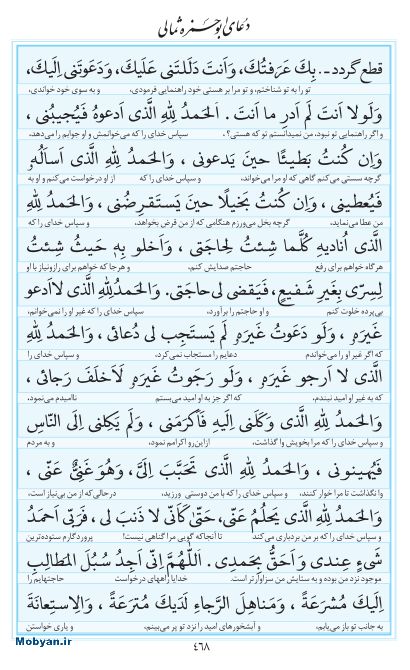 دُعای ابوحمزه ثمالی
قطع گردد ـ. بِكَ عَرَفتُكَ، وَاَنتَ دَلَلتَنی عَلَیكَ، وَدَعَوتَنی اِلَیكَ،
تو را به تو شناختم، و تو مرا بر هستی خود راهنمایی فرمودی، و به سوی خود خواندی،
وَلَولا اَنتَ لَم اَدرِ ما اَنتَ . اَلحَمدُ لِلّٰهِ الَّذی اَدعوهُ فَیُجیبُنی ،
و اگر راهنمایی تو نبود، من نمیدانستم تو که هستی؟. سپاس خدای را که می‌خوانمش و او جوابم را می‌دهد،
وَاِن كُنتُ بَطیـًٔا حینَ یَدعونی ، وَالحَمدُ لِلّٰهِ الَّذی اَسأَلُهٗ
گرچه سستی می‌کنم گاهی که او مرا می‌خواند، و سپاس خدای را که از او درخواست می‌کنم و او به
فَیُعطینی ، وَاِن كُنتُ بَخیلًا حینَ یَستَقرِضُنی ، وَالحَمدُ لِلّٰهِ
من عطا می‌نماید، گرچه بخل می‌ورزم هنگامی که از من قرض بخواهد، و سپاس خدای را که
الَّذی اُنادیهِ كُلَّما شِئتُ لِحاجَتی ، وَاَخلو بِهٖ حَیثُ شِئتُ
هرگاه خواهم برای رفع حاجتم صدایش کنم، و هرجا که خواهم برای رازونیاز با او
لِسِرّی بِغَیرِ شَفیعٍ، فَیَقضی لی حاجَتی. وَالحَمدُ لِلّٰهِ الَّذی لااَدعو
بی‌پرده خلوت کنم و او حاجتم را برآورد، و سپاس خدای را که غیر او را نمی‌خوانم،
غَیرَهٗ ، وَلَو دَعَوتُ غَیرَهٗ لَم یَستَجِب لی دُعائی ، وَالحَمدُ لِلّٰهِ
که اگر غیر او را می‌خواندم دعایم را مستجاب نمی‌کرد، و سپاس خدای را
الَّذی لا اَرجو غَیرَهٗ ، وَلَو رَجَوتُ غَیرَهٗ لَاَخلَفَ رَجائی ،
که به غیر او امید نبندم، که اگر جز به او امید می‌بستم ناامیدم می‌نمود،
وَالحَمدُ لِلّٰهِ الَّذی وَكَلَنی اِلَیهِ فَاَكرَمَنی ، وَلَم یَكِلنی اِلَی النّاسِ
و سپاس خدای را که مرا بخویش وا گذاشت، ازاین‌رو اکرامم نمود، و به مردم
فَیُهینونی ، وَالحَمدُ لِلّٰهِ الَّذی تَحَبَّبَ اِلَیَّ، وَهُوَ غَنِیٌّ عَنّی ،
وانگذاشت تا مرا خوار کنند، و سپاس خدای را که با من دوستی ورزید، درحالی‌که از من بی‌نیاز است،
وَالحَمدُ لِلّٰهِ الَّذی یَحلُمُ عَنّی، حَتّیٰ كَأَنّی لا ذَنبَ لی ، فَرَبّی اَحمَدُ
و سپاس خدای را که بر من بردباری می‌کند تا آنجاکه گویی مرا گناهی نیست! پروردگارم ستوده‌ترین
شَیءٍ عِندی وَاَحَقُّ بِحَمدی. اَللّٰهُمَّ اِنّی اَجِدُ سُبُلَ المَطالِبِ
موجود نزد من بوده و به ستایش من سزاوارتر است. خدایا راههای درخواست حاجتهایم را
اِلَیكَ مُشرَعَةً ، وَمَناهِلَ الرَّجاءِ لَدَیكَ مُترَعَةً ، وَالاِستِعانَةَ
به جانب تو باز می‌یابم، و آبشخورهای امید را نزد تو پر می‌بینم، و یاری خواستن
٤٦٨
Mobyan.ir